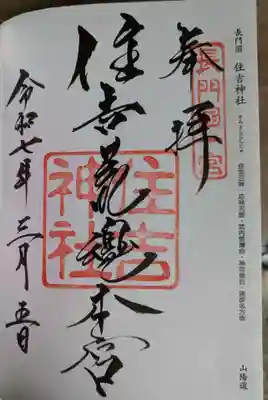 長門國 住吉神社
奉拝
長門國一宮
住吉荒魂本宮
住吉神社
令和七年三月五日
山陽道